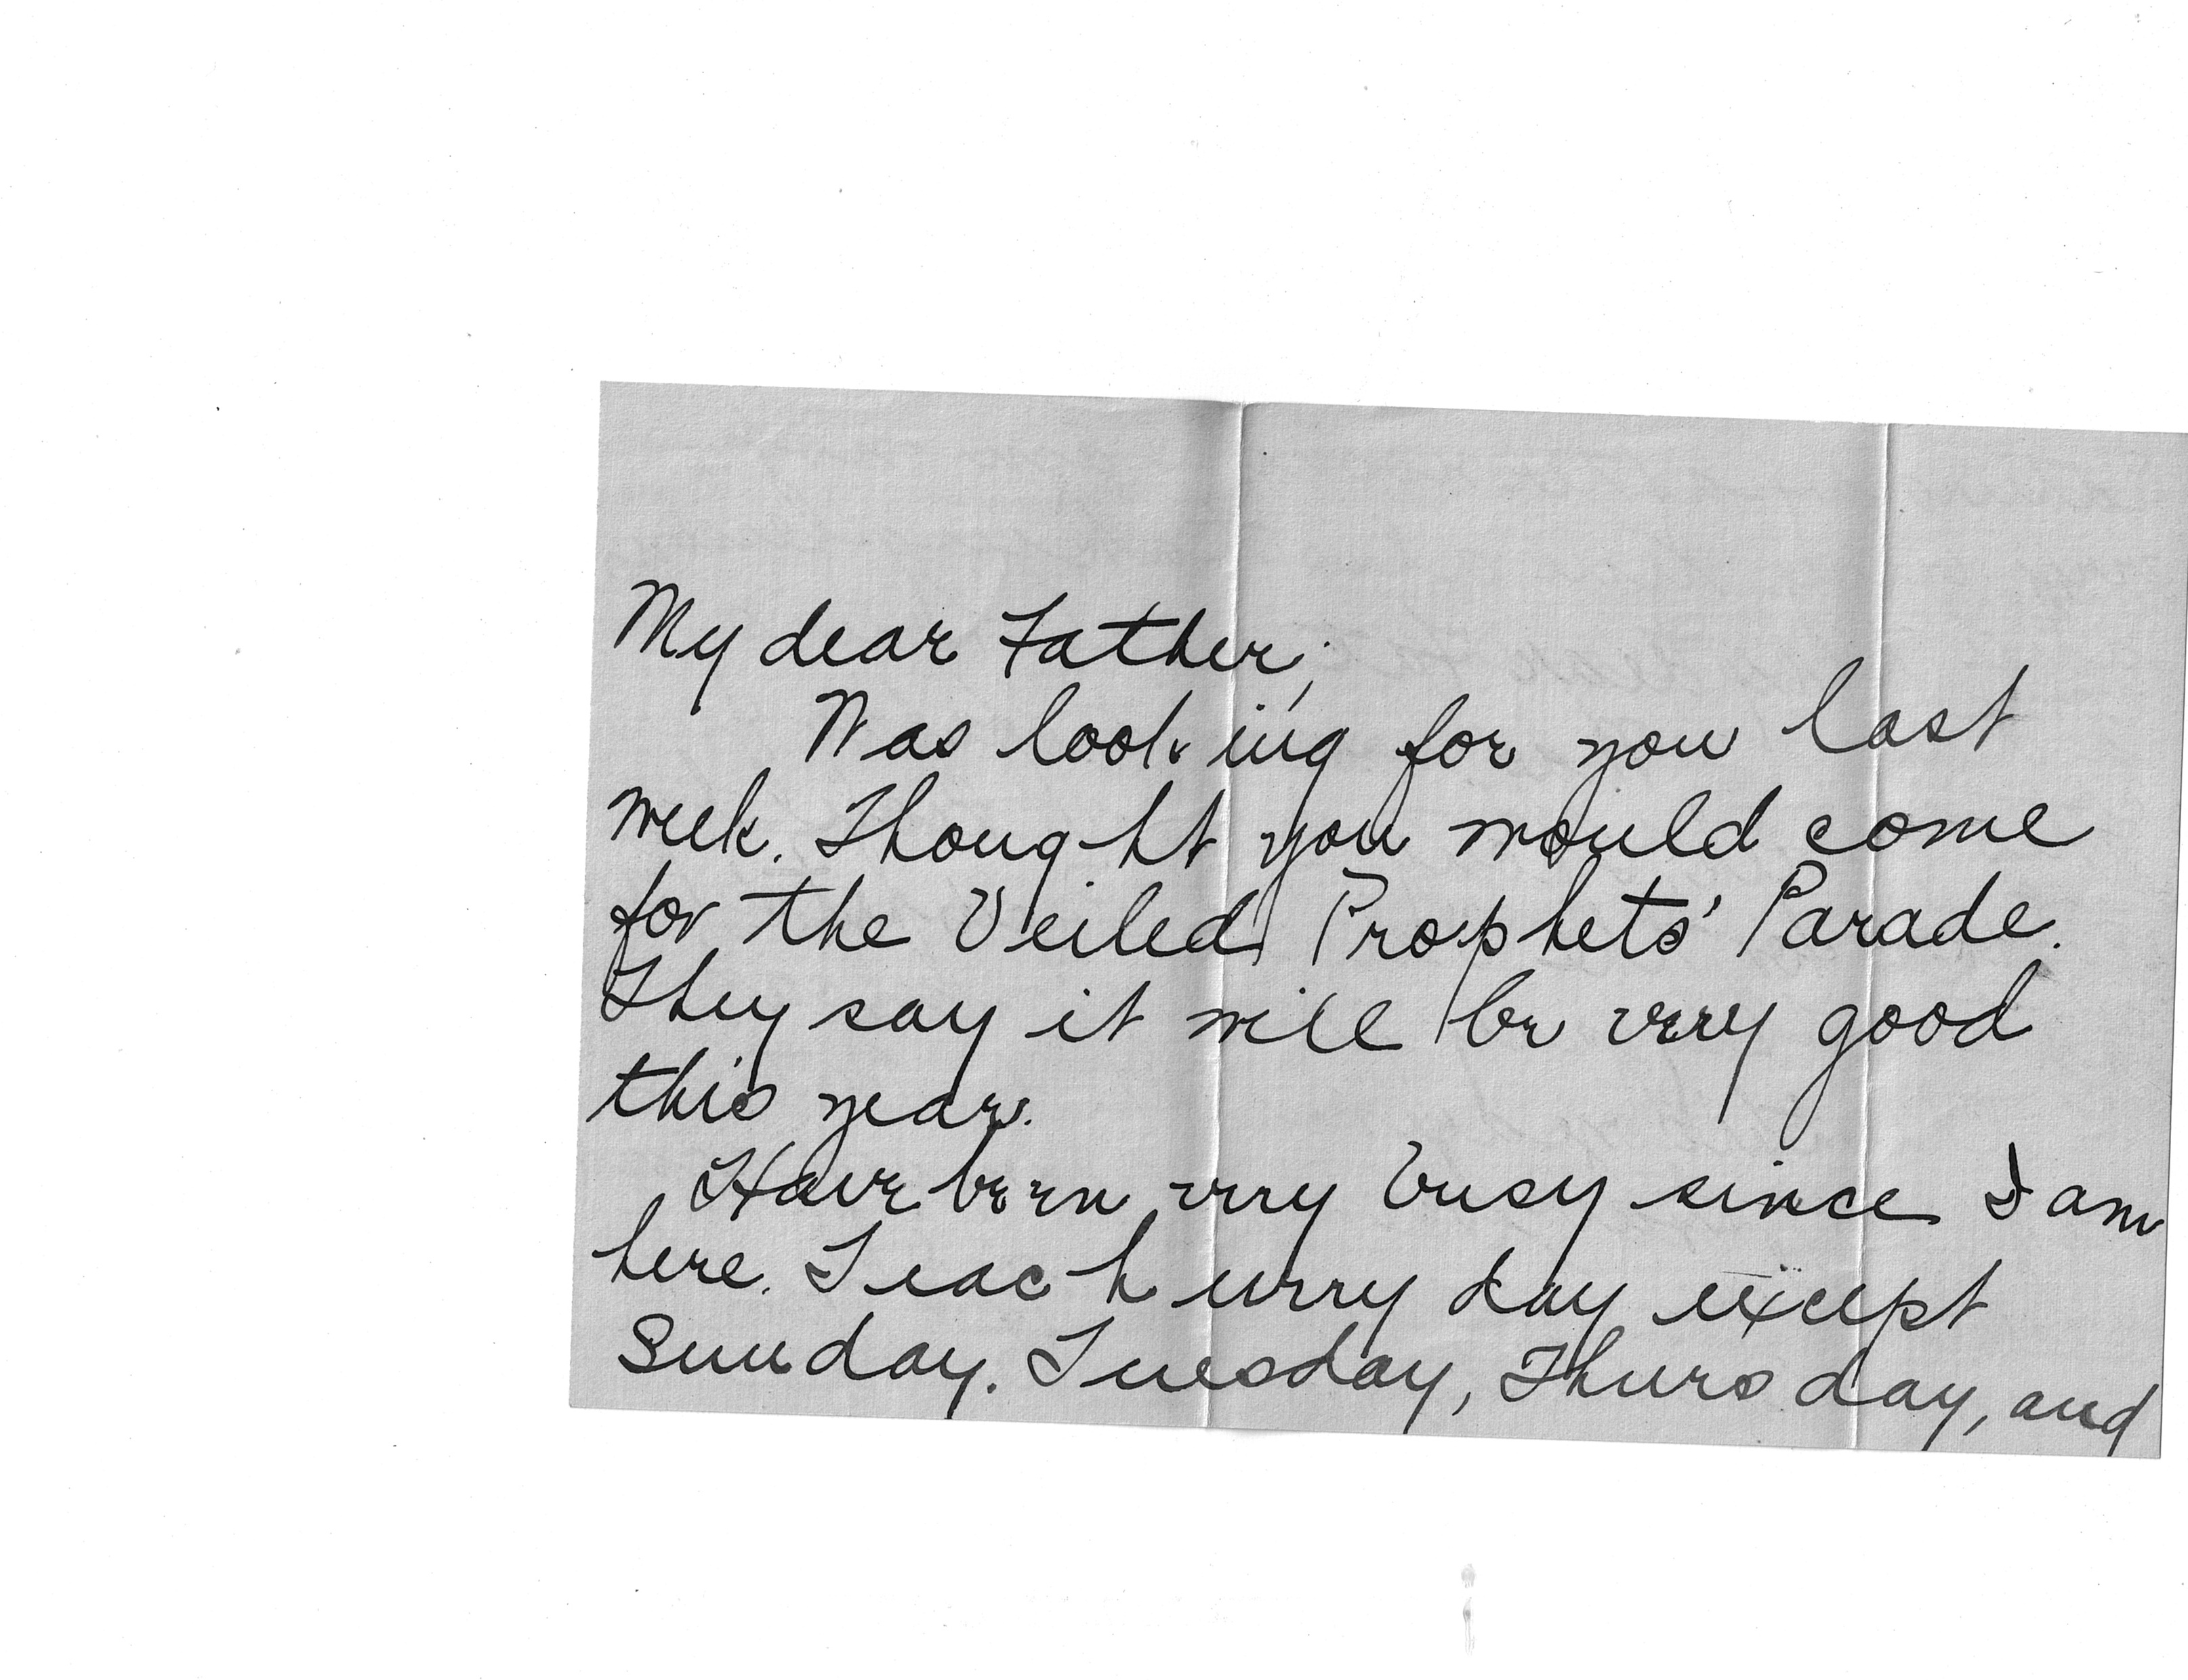 My dear Father;
Was looking for you last
week. Thought you would come
for the Veiled Prophets' Parade.
They say it will be very good
this year.
Have been very busy since I am
here. Teach every day except
Sunday. Tuesday, Thursday, and